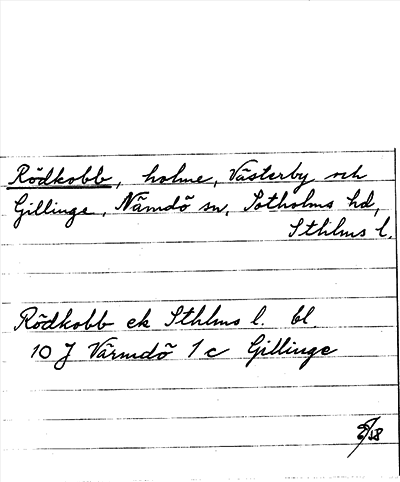 Rödkobb, holme, Västerby och
Gillinge, Nämdö sn, Sotholms hd,
Sthlms l.
Rödkobb ek Sthlms l. bl.
10 J Värmdö 1 c Gillinge